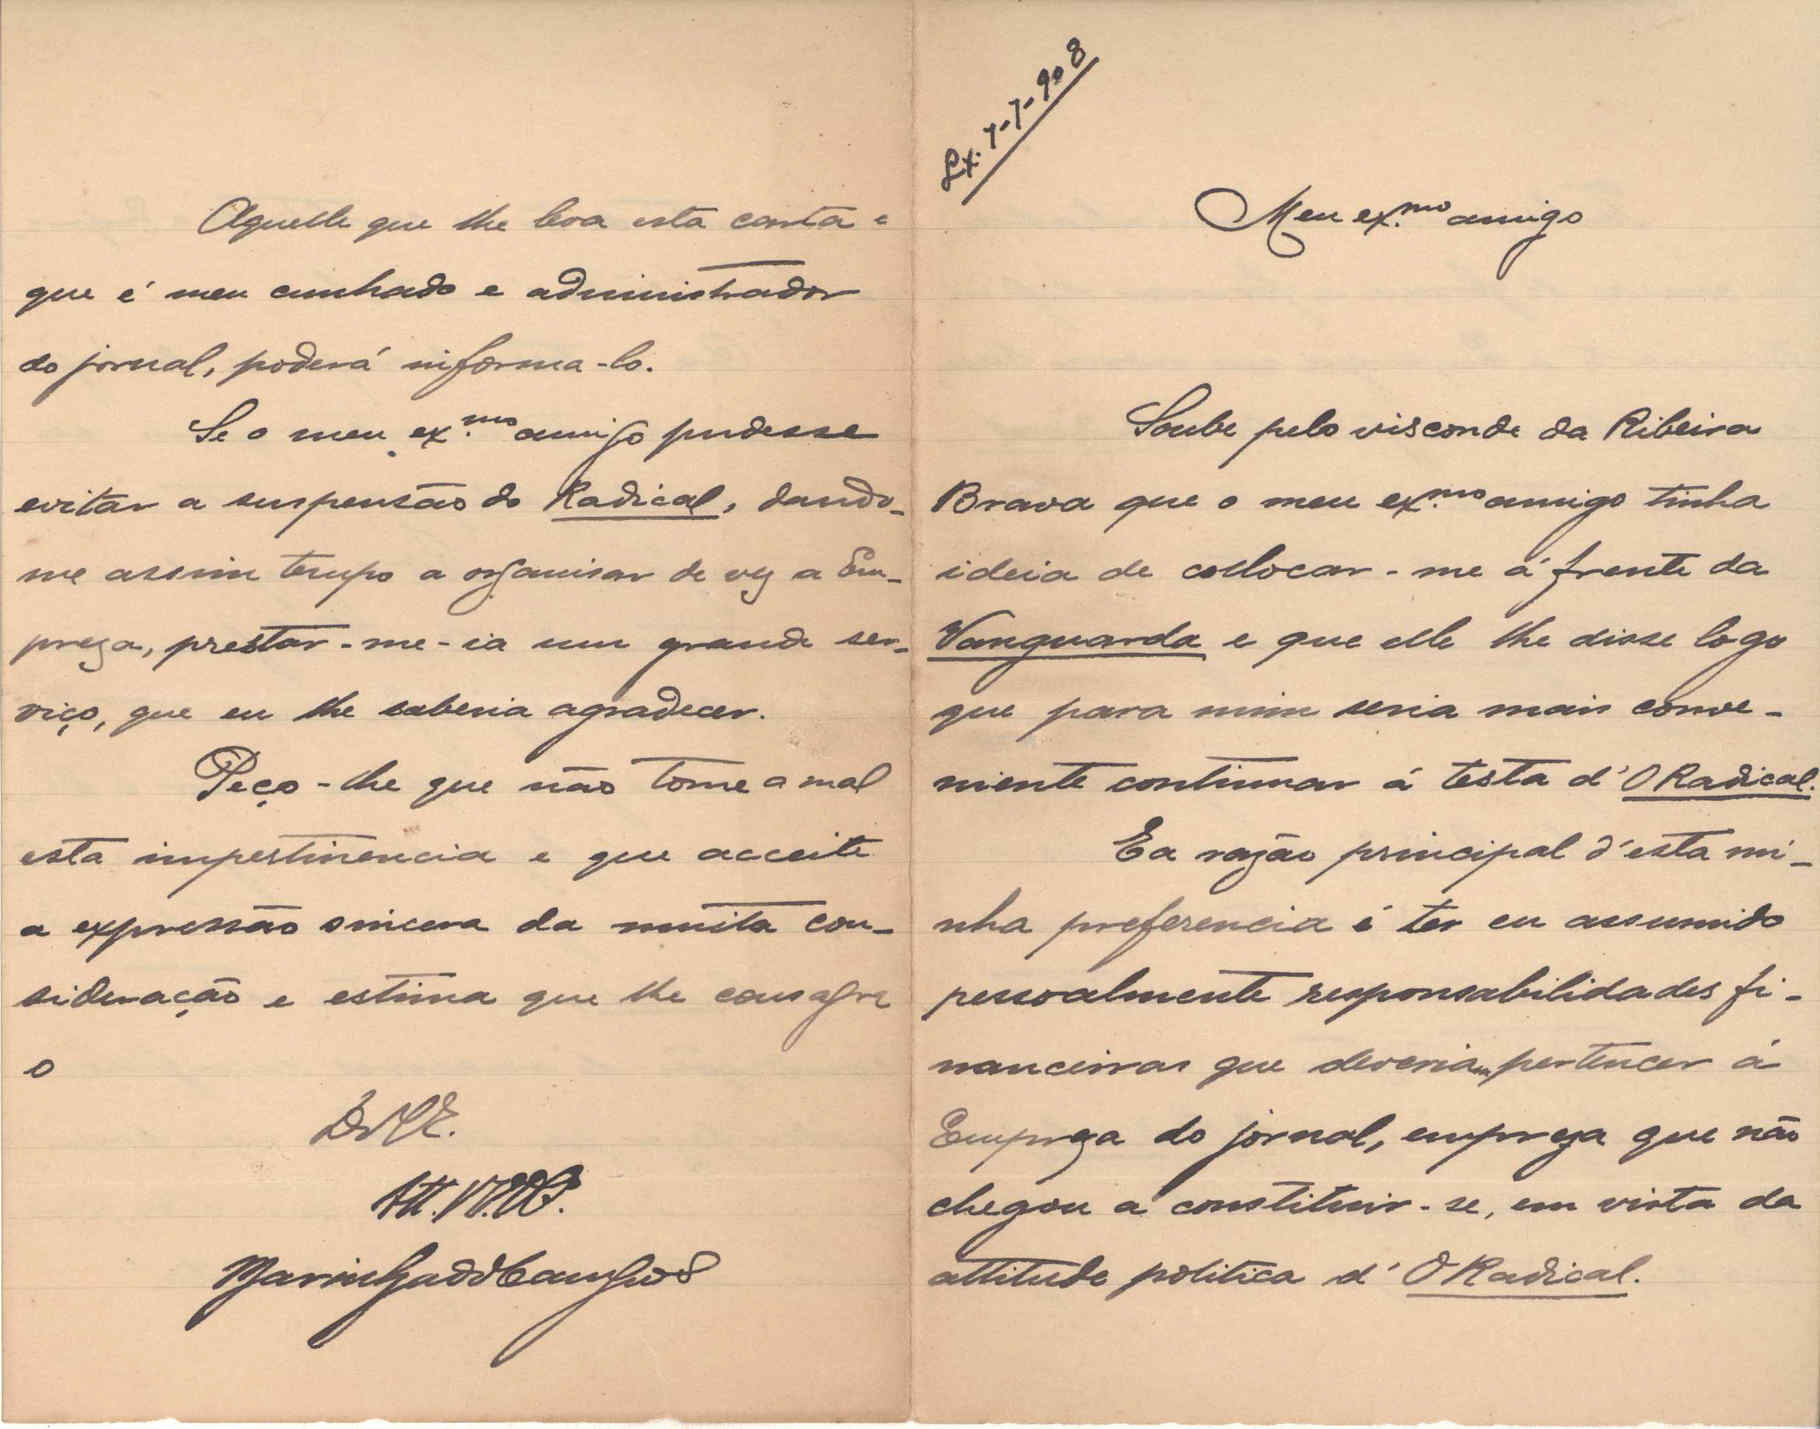 Lx. 7-7-908
Meu ex.mo amigo
Soube pelo visconde da Ribeira
Brava que o meu ex.mo amigo tinha
ideia de collocar-me á frente da
Vanguarda e que elle lhe disse logo
que para mim seria mais conve-
niente continuar á testa d'O Radical.
E a razão principal d'esta mi-
nha preferencia é ter eu assumido
pessoalmente responsabilidades fi-
nanceiras que deveriam pertencer á
Empreza do jornal, empreza que não
chegou a constituir-se, em vista da
attitude politica d'O Radical.
Aquelle que lhe leva esta carta e
que é meu cunhado e administrador
do jornal, poderá informa-lo.
Se o meu ex.mo amigo pudesse
evitar a suspensão do Radical, dando-
me assim tempo a organisar de vez a Em-
preza, prestar-me-ia um grande ser-
viço, que eu lhe saberia agradecer.
Peço-lhe que não tome a mal
esta impertinencia e que acceite
a expressão sincera da muita con-
sideração e estima que lhe consagra
o
De V. E.
Att. V.
Marinha de Campos